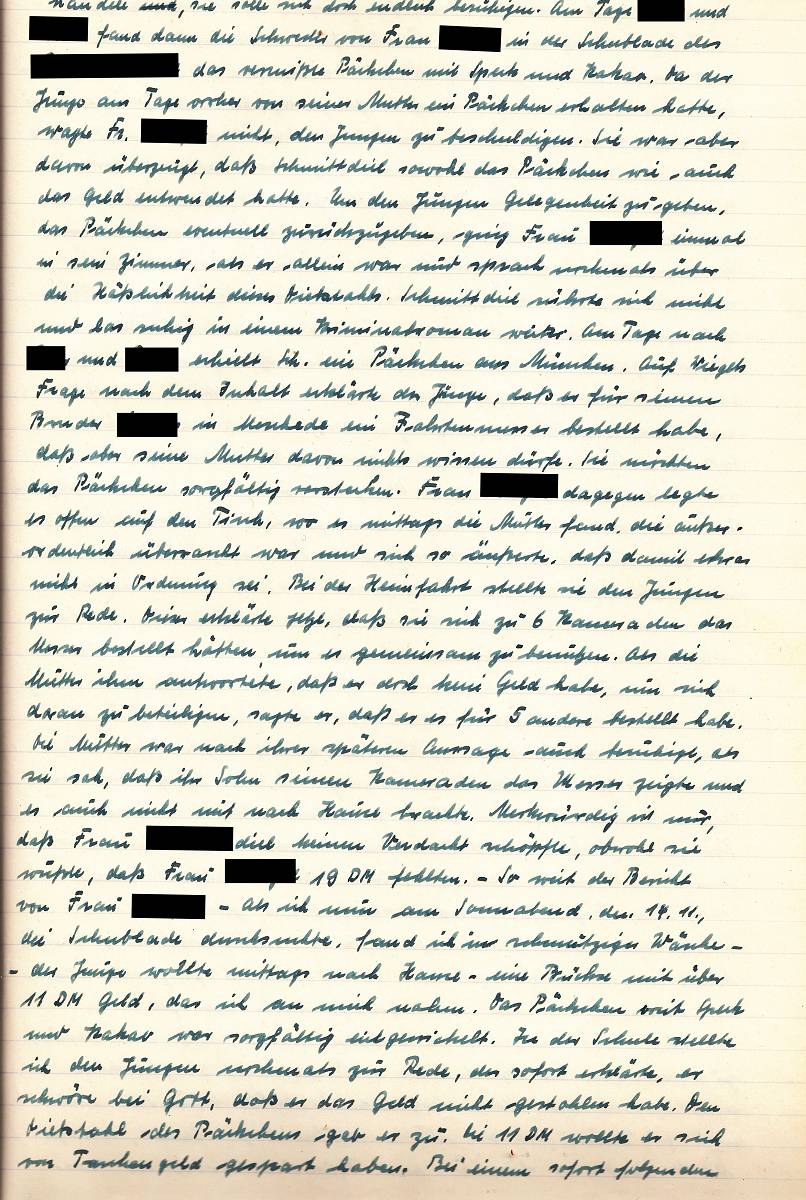 handele und, sie solle sich doch endlich beruhigen. Am Tage und
fand dann die Schwester von Frau in der Schublade des
das vermißte Päckchen mit Speck und Kakao. Da der
Junge am Tage vorher von seiner Mutter ein Päckchen erhalten hatte,
wagte Fr. nicht, den Jungen zu beschuldigen. Sie war aber
davon überzeugt, daß Schmittdiel sowohl das Päckchen wie auch
das Geld entwendet hatte. Um dem Jungen Gelegenheit zu geben,
das Päckchen eventuell zurückzugeben, ging Frau einmal
in sein Zimmer, als er allein war und sprach nochmals über
die Häßlichkeit dieses Diebstahls. Schmittdiel rührte sich nicht
und las ruhig in einem Kriminalroman weiter. Am Tage nach
und erhielt Sch. ein Päckchen aus München. Auf Wiegels
Frage nach dem Inhalt erklärte der Junge, daß er für seinen
Bruder in Meschede ein Fahrtenmesser bestellt habe,
daß aber seine Mutter davon nichts wissen dürfe. Sie möchten
das Päckchen sorgfältig verstecken. Frau dagegen legte
es offen auf den Tisch, wo es mittags die Mutter fand, die außer-
ordentlich überrascht war und sich so äußerte, daß damit etwas
nicht in Ordnung sei. Bei der Heimfahrt stellte sie den Jungen
zur Rede. Dieser erklärte jetzt, daß sie sich zu 6 Kameraden das
Messer bestellt hätten, um es gemeinsam zu benutzen. Als die
Mutter ihm antwortete, daß er doch kein Geld habe, um sich
daran zu beteiligen, sagte er, daß er es für 5 andere bestellt habe.
Die Mutter war nach ihrer späteren Aussage auch beruhigt, als
sie sah, daß ihr Sohn seinen Kameraden das Messer zeigte und
es auch nicht mit nach Hause brachte. Merkwürdig ist nur,
daß Frau diel keinen Verdacht schöpfte, obwohl sie
wußte, daß Frau 19 DM fehlten. - So weit der Bericht
von Frau - Als ich nun am Sonnabend, den 14.11.,
die Schublade durchsuchte, fand ich in schmutziger Wäsche -
- der Junge wollte mittags nach Hause - eine Büchse mit über
11 DM Geld, das ich an mich nahm. Das Päckchen mit Speck
und Kakao war sorgfältig eingewickelt. In der Schule stellte
ich den Jungen nochmals zur Rede, der sofort erklärte, er
schwöre bei Gott, daß er das Geld nicht gestohlen habe. Den
Diebstahl des Päckchens gab er zu. Die 11 DM wollte er sich
von Taschengeld gespart haben. Bei einem sofort folgenden